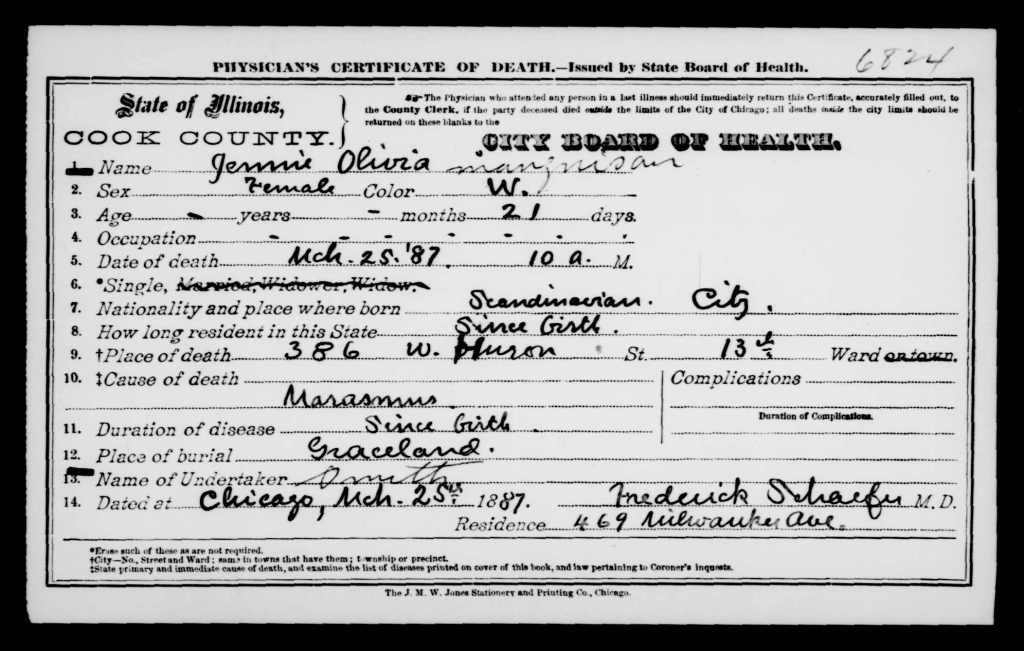 6824
PHYSICIAN'S CERTIFICATE OF DEATH.—Issued by State Board of Health.
State of Illinois,
COOK COUNTY.
☞The Physician who attended any person in a last illness should immediately return this Certificate, accurately filled out, to
the County Clerk, if the party deceased died outside the limits of the City of Chicago; all deaths inside the city limits should be
returned on these blanks to the
CITY BOARD OF HEALTH.
1. Name Jennie Olivia
2. Sex Female Color W.
3. Age - years - months 21 days.
4. Occupation - - - - - - -
5. Date of death Mch. 25. '87. 10 a. M.
6. *Single, Married, Widower, Widow.
7. Nationality and place where born Scandinavian. City.
8. How long resident in this State Since birth.
9. †Place of death 386 W. Huron St. 13th Ward or town.
10. ‡Cause of death Complications
Marasmus
Duration of Complications.
11. Duration of disease Since birth.
12. Place of burial Graceland.
13. Name of Undertaker
14. Dated at Chicago, Mch. 25th 1887. Frederick Schaefer M.D.
Residence 469 Milwaukee Ave.
*Erase such of these as are not required.
†City—No., Street and Ward; same in towns that have them; township or precinct.
‡State primary and immediate cause of death, and examine the list of diseases printed on cover of this book, and law pertaining to Coroner's inquests.
The J. M. W. Jones Stationery and Printing Co., Chicago.